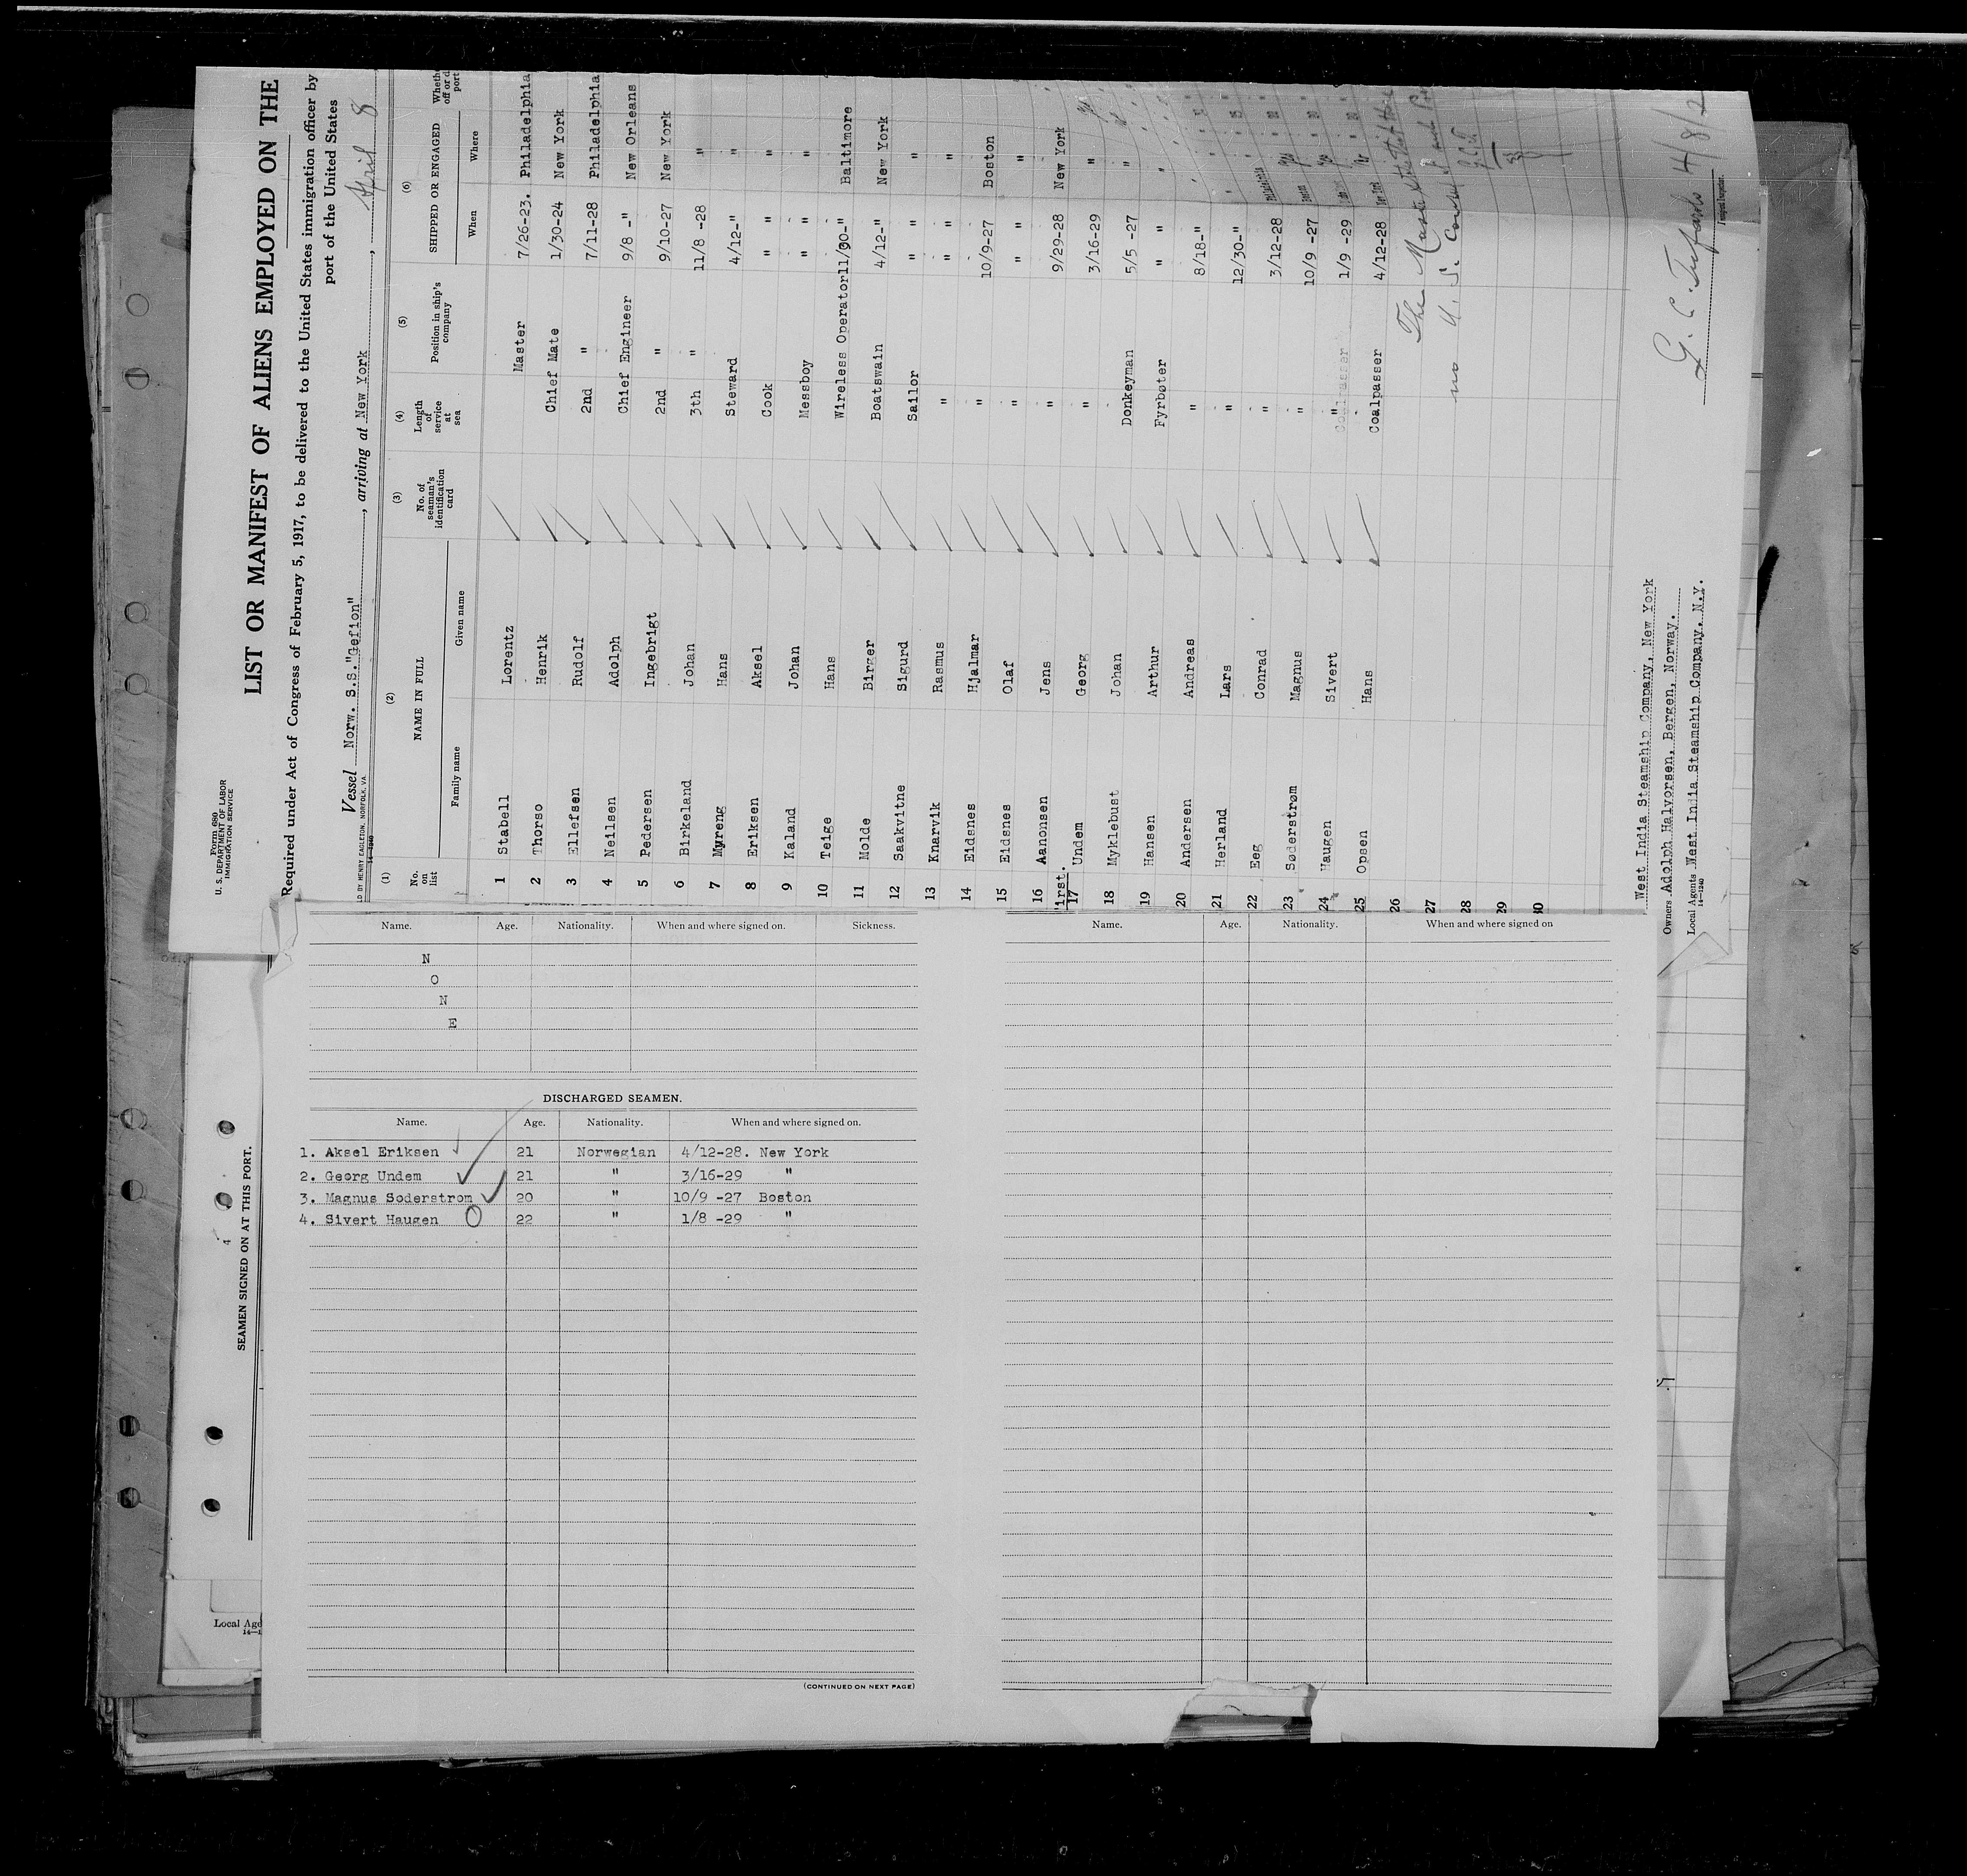 Form 680
U. S. DEPARTMENT OF LABOR
IMMIGRATION SERVICE
LIST OR MANIFEST OF ALIENS EMPLOYED ON THE
Required under Act of Congress of February 5, 1917, to be delivered to the United States immigration officer by
port of the United States
Vessel Norw. S.S."Gefion", arriving at New York, April 8
LD BY HENRY EAGLETON, NORFOLK, VA.
14—1240
(1) (2) (3) (4) (5) (6)
No. on list NAME IN FULL No. of seaman's identification card Length of service at sea Position in ship's company SHIPPED OR ENGAGED
Family name Given name When Where
1 Stabell Lorentz Master 7/26-23. Philadelphia
2 Thorso Henrik Chief Mate 1/30-24 New York
3 Ellefsen Rudolf 2nd " 7/11-28 Philadelphia
4 Neilsen Adolph Chief Engineer 9/8 -" New Orleans
5 Pedersen Ingebrigt 2nd " 9/10-27 New York
6 Birkeland Johan 3th " 11/8 -28 "
7 Myreng Hans Steward 4/12-" "
8 Eriksen Aksel Cook " " "
9 Kaland Johan Messboy " " "
10 Teige Hans Wireless Operator 11/30-" Baltimore
11 Molde Birger Boatswain 4/12-" New York
12 Saakvitne Sigurd Sailor " " "
13 Knarvik Rasmus " " " "
14 Eidsnes Hjalmar " 10/9-27 Boston
15 Eidsnes Olaf " " " "
16 Aanonsen Jens " 9/29-28 New York
17 Undem Georg " 3/16-29 "
18 Myklebust Johan Donkeyman 5/5 -27 "
19 Hansen Arthur Fyrbøter " " "
20 Andersen Andreas " 8/18-"
21 Herland Lars " 12/30-"
22 Eeg Conrad " 3/12-28
23 Søderstrøm Magnus " 10/9 -27
24 Haugen Sivert " 1/9 -29
25 Opsen Hans Coalpasser 4/12-28
26
27
28
29
30
West India Steamship Company, New York
Owners Adolph Halvorsen, Bergen, Norway.
Local Agents West India Steamship Company, N.Y.
14—1240
Name. Age. Nationality. When and where signed on. Sickness.
N
O
N
E
DISCHARGED SEAMEN.
Name. Age. Nationality. When and where signed on.
1. Aksel Eriksen 21 Norwegian 4/12-28. New York
2. Georg Undem 21 " 3/16-29 "
3. Magnus Soderstrom 20 " 10/9 -27 Boston
4. Sivert Haugen 22 " 1/8 -29 "
(CONTINUED ON NEXT PAGE)
Name. Age. Nationality. When and where signed on
SEAMEN SIGNED ON AT THIS PORT.
4
Local Age